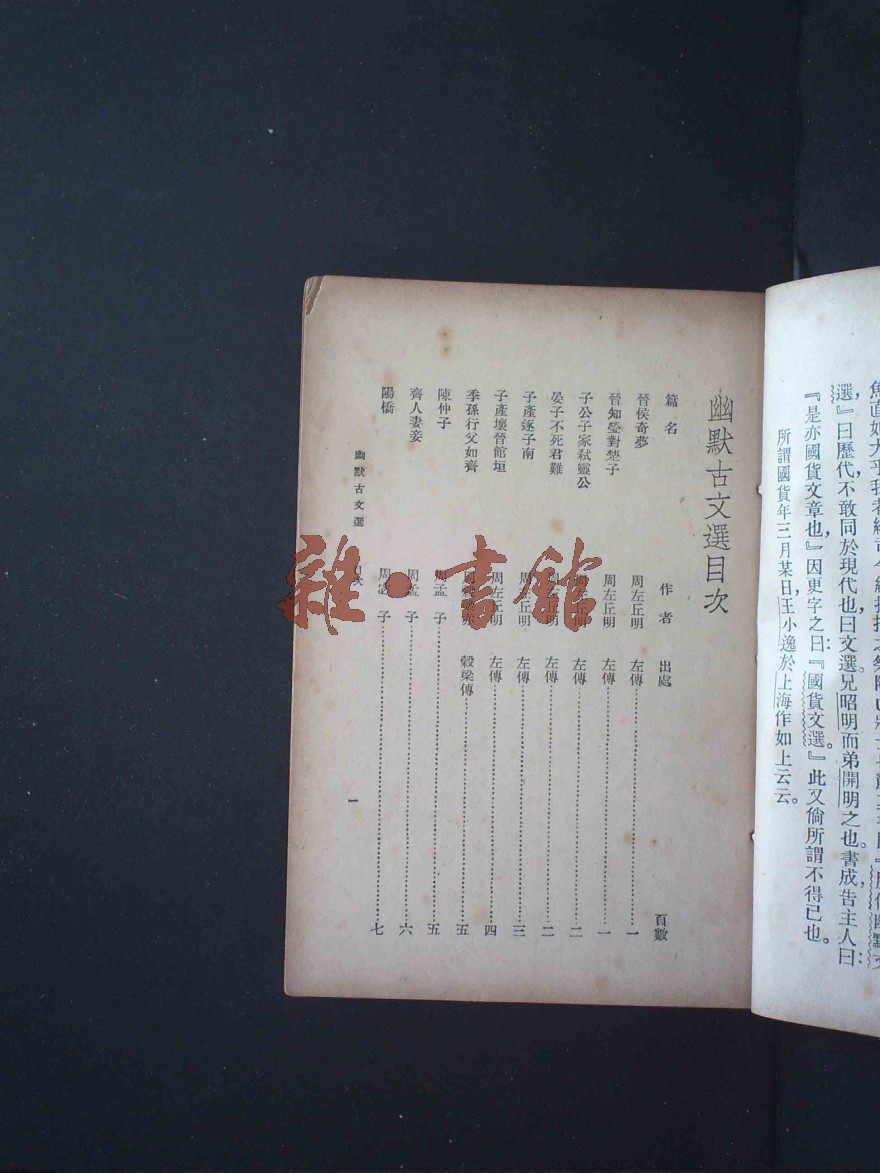 選』曰歷代不敢同於現代也曰文選兄昭明而弟開明之也。書成告主人曰：
『是亦國貨文章也』因更字之曰：『國貨文選。』此又倘所謂不得已也。
所謂國貨年三月某日，王小逸於上海作如上云云。
幽默古文選目次
篇名 作者 出處 頁數
晉侯奇夢 周左丘明 左傳 一
晉知罃對楚子 周左丘明 左傳 一
子公子家弒靈公 周左丘明 左傳 二
晏子不死君難 周左丘明 左傳 二
子產逐子南 周左丘明 左傳 三
子產壞晉館垣 周左丘明 左傳 四
季孫行父如齊 穀梁傳 五
陳仲子 周孟子 五
齊人妻妾 周孟子 六
陽橋 周 子 七
幽默古文選 目次 一
雜·書館